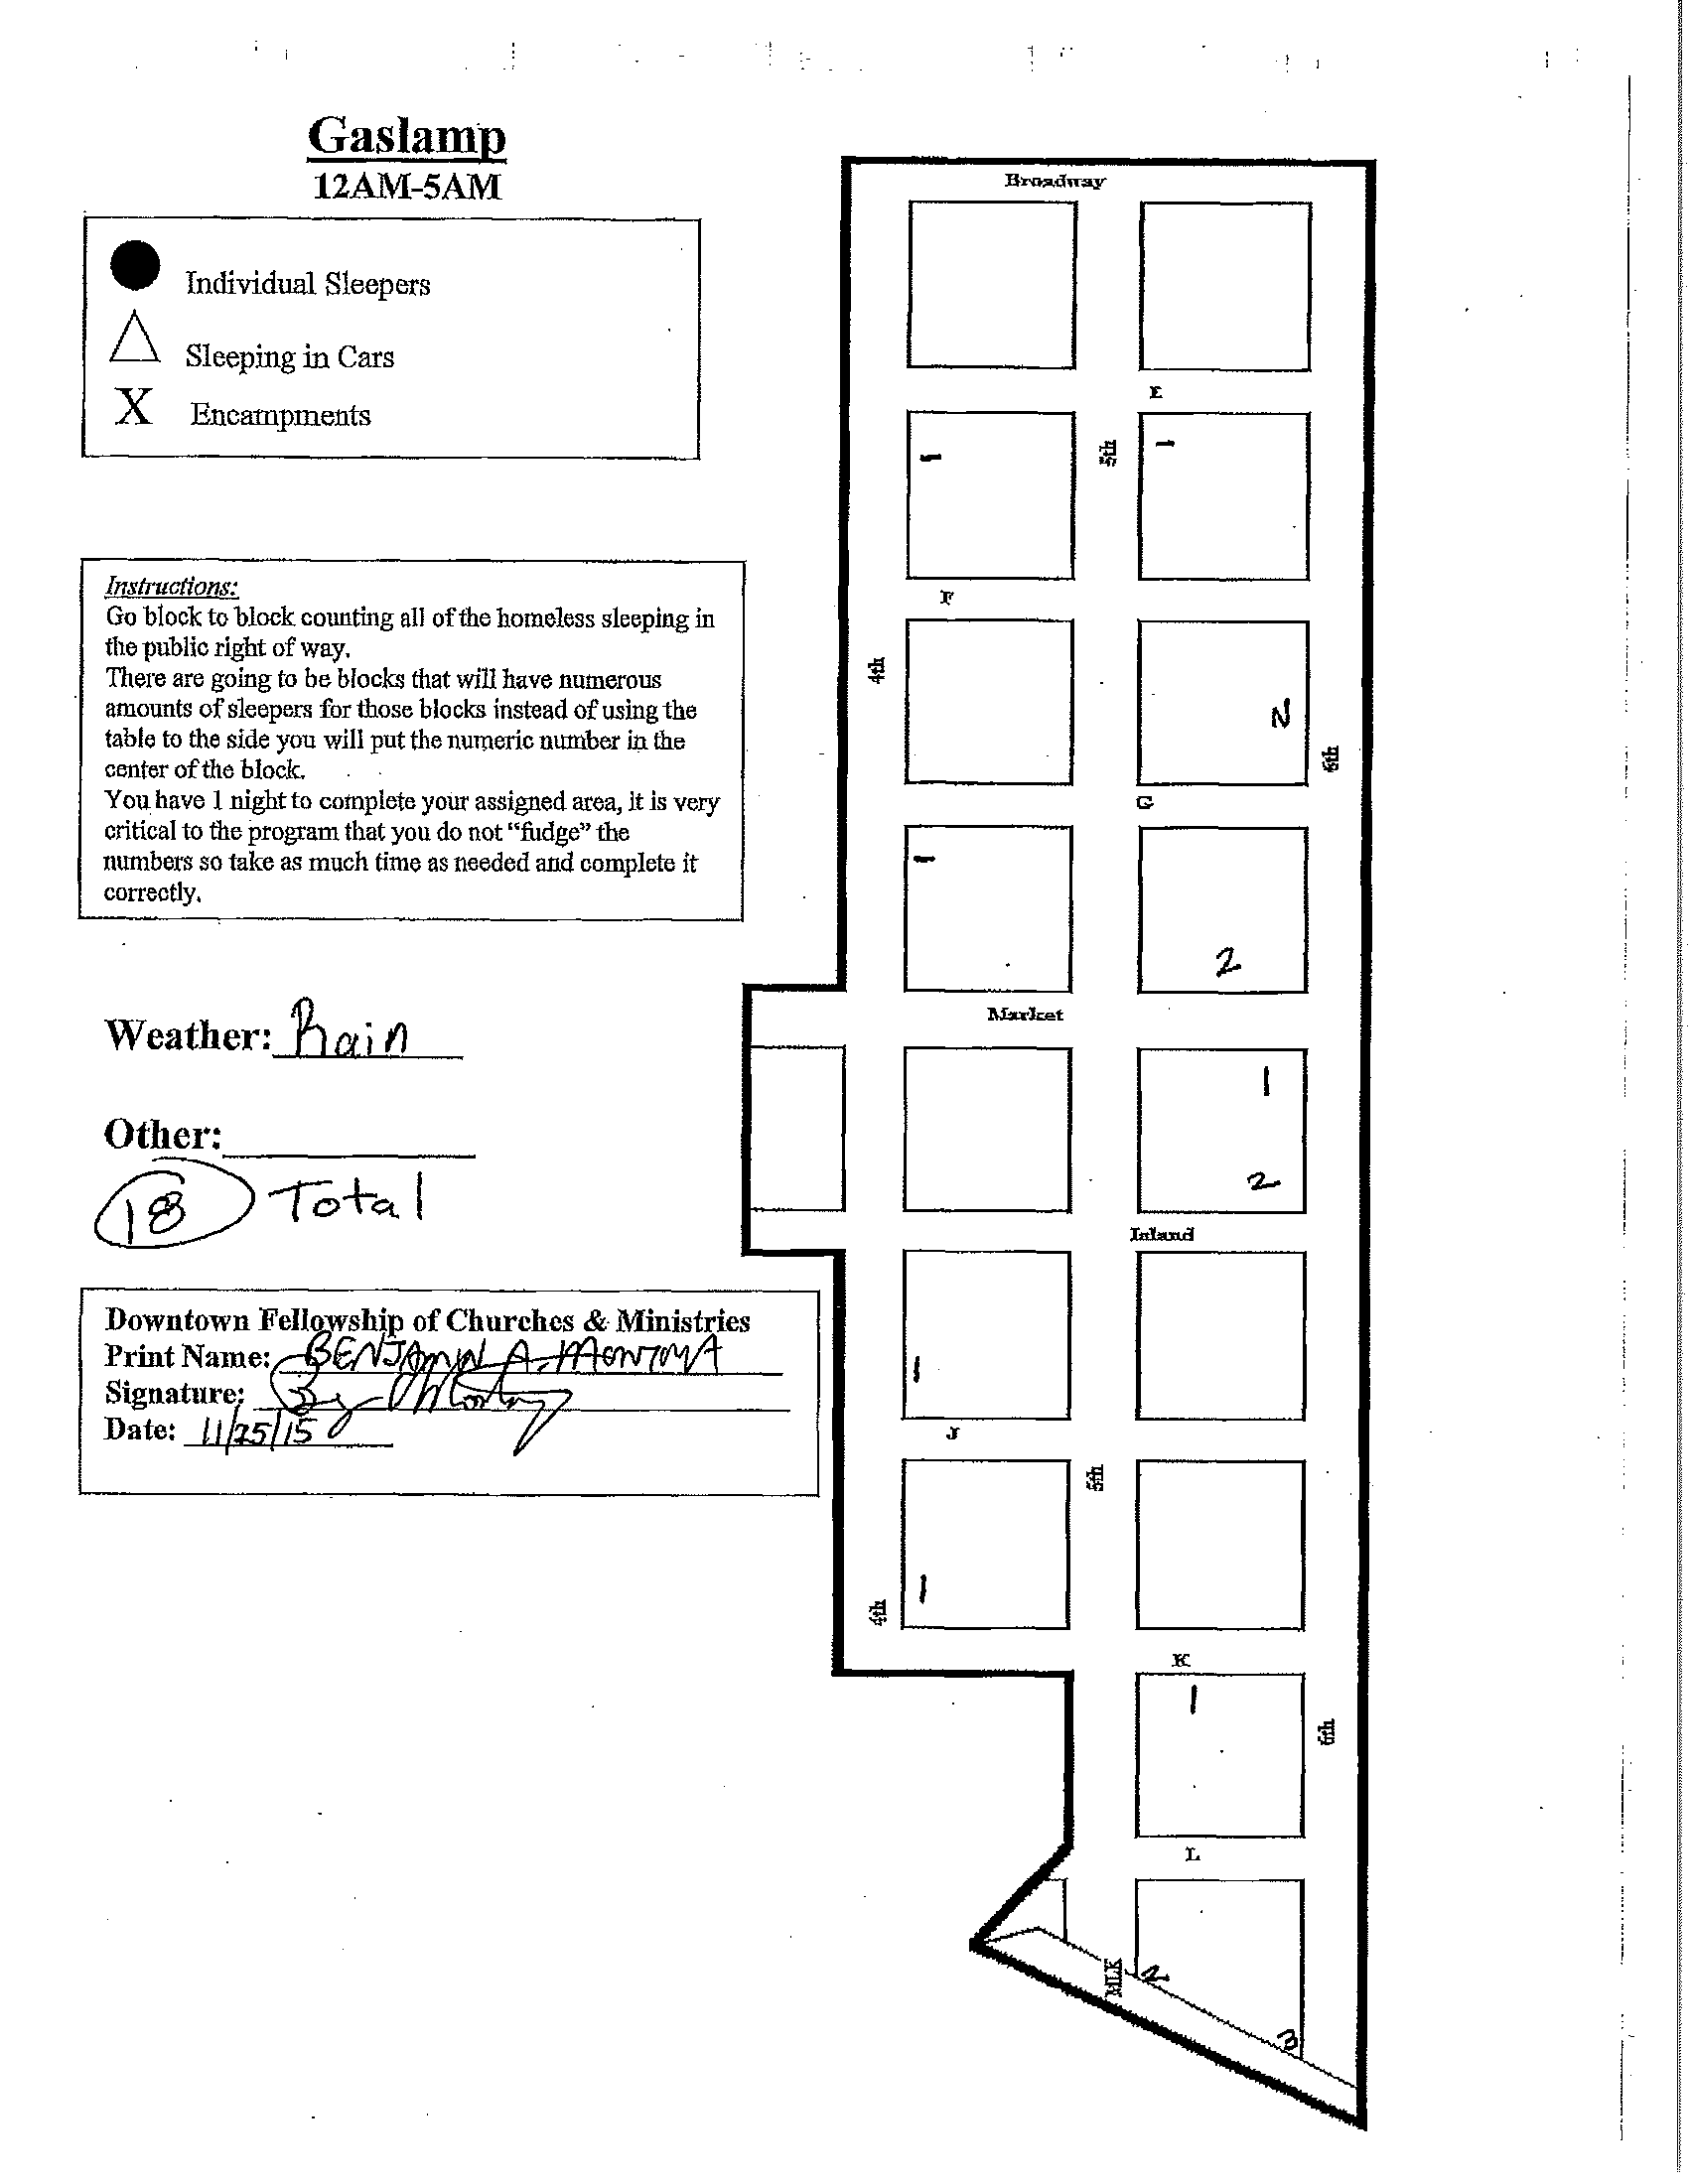 Gaslamp
12AM-5AM
Individual Sleepers
Sleeping in Cars
X Encampments
Instructions:
Go block to block counting all of the homeless sleeping in
the public right of way.
There are going to be blocks that will have numerous
amounts of sleepers for those blocks instead of using the
table to the side you will put the numeric number in the
center of the block.
You have 1 night to complete your assigned area, it is very
critical to the program that you do not “fudge” the
numbers so take as much time as needed and complete it
correctly.
Weather: Rain
Other:
18 Total
Downtown Fellowship of Churches & Ministries
Print Name: BENJAMIN A. MONTOYA
Signature:
Date: 11/25/15
Broadway
E
1
5th
1
F
4th
2
6th
G
1
2
Market
1
2
Island
1
J
5th
1
4th
K
1
6th
L
MLK
2
3